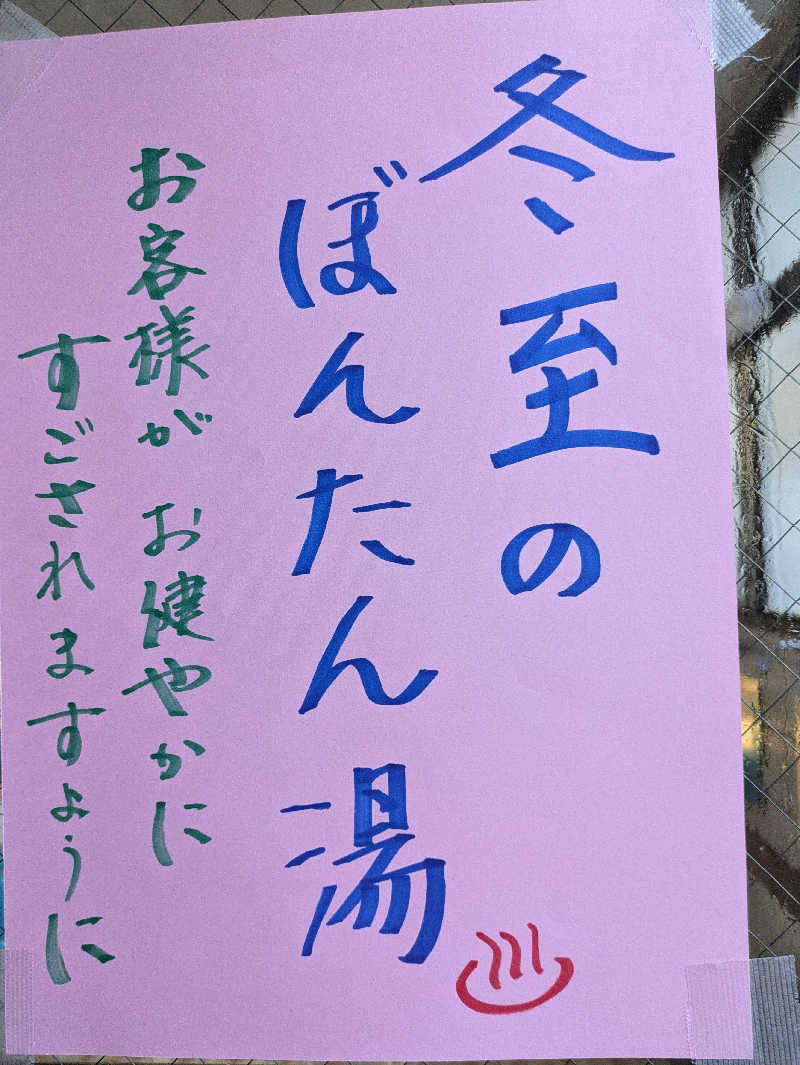 冬至の
ぼんたん湯
お客様が お健やかに
すごされますように